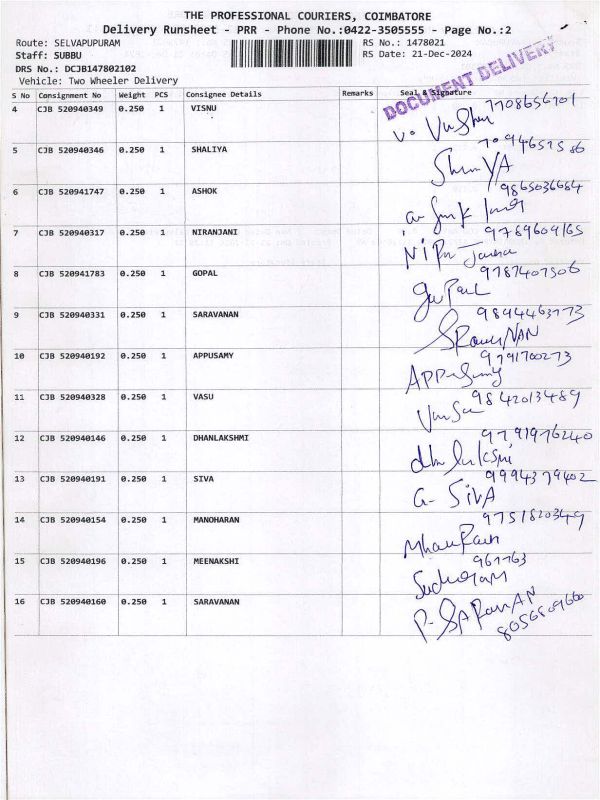 THE PROFESSIONAL COURIERS, COIMBATORE
Delivery Runsheet - PRR - Phone No.:0422-3505555 - Page No.:2
Route: SELVAPUPURAM RS No.: 1478021
Staff: SUBBU RS Date: 21-Dec-2024
DRS No.: DCJB147802102
Vehicle: Two Wheeler Delivery
DOCUMENT DELIVERY
S No Consignment No Weight PCS Consignee Details Remarks Seal & Signature
4 CJB 520940349 0.250 1 VISNU 7708656701
5 CJB 520940346 0.250 1 SHALIYA
6 CJB 520941747 0.250 1 ASHOK 9865036684
7 CJB 520940317 0.250 1 NIRANJANI 9789609165
8 CJB 520941783 0.250 1 GOPAL 9787407506
9 CJB 520940331 0.250 1 SARAVANAN 9894463773
10 CJB 520940192 0.250 1 APPUSAMY 9791700273
11 CJB 520940328 0.250 1 VASU 9842013489
12 CJB 520940146 0.250 1 DHANLAKSHMI 9791976240
13 CJB 520940191 0.250 1 SIVA 9994379402
G- SIVA
14 CJB 520940154 0.250 1 MANOHARAN 9751820349
15 CJB 520940196 0.250 1 MEENAKSHI
16 CJB 520940160 0.250 1 SARAVANAN